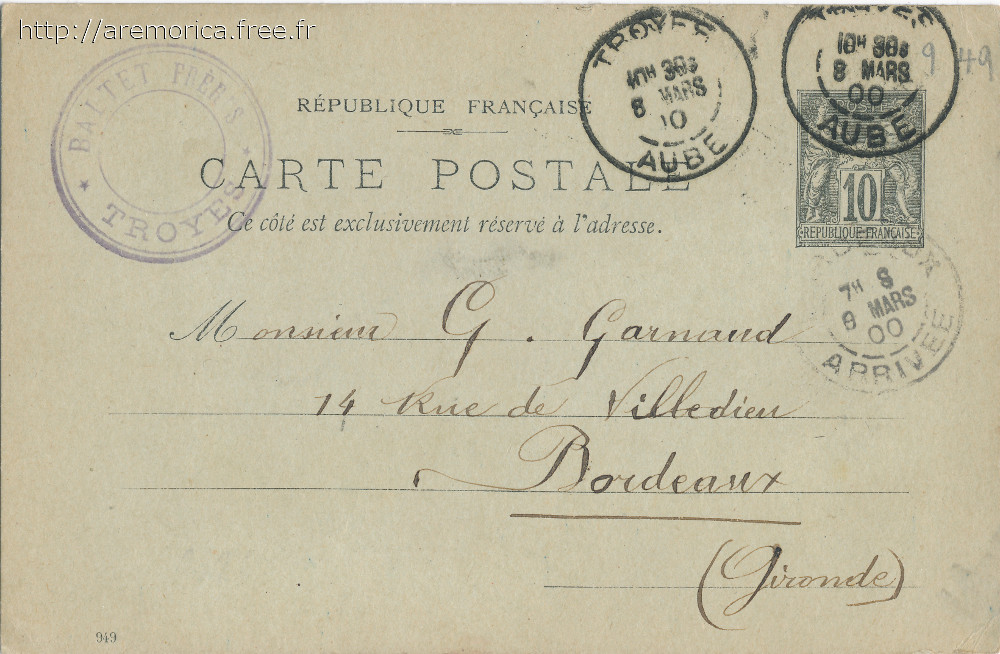 http://aremorica.free.fr
BALTET FRÈRES
TROYES
RÉPUBLIQUE FRANÇAISE
CARTE POSTALE
Ce côté est exclusivement réservé à l'adresse.
TROYES
8 MARS
AUBE
TROYES
8 MARS
00
AUBE
9 49
10
RÉPUBLIQUE FRANÇAISE
7H S
MARS
00
ARRIVEE
Monsieur G. Garnaud
14 Rue de Villedieu
Bordeaux
(Gironde)
949